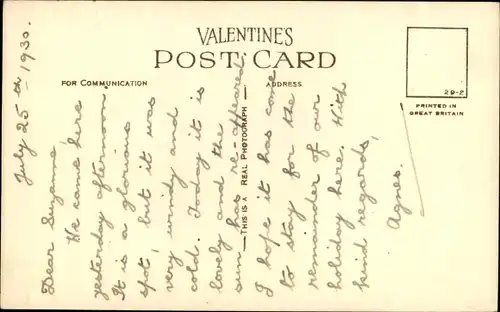 VALENTINE'S
POST CARD
FOR COMMUNICATION
ADDRESS
THIS IS A REAL PHOTOGRAPH
29-2
PRINTED IN
GREAT BRITAIN
July 25th 1930.
Dear Suzanne,
We came here
yesterday afternoon.
It is a glorious
spot, but it was
very windy and
cold. Today it is
lovely and the
sun has re-appeared
I hope it has come
to stay for the
remainder of our
holiday here. With
kind regards,
Agnes.